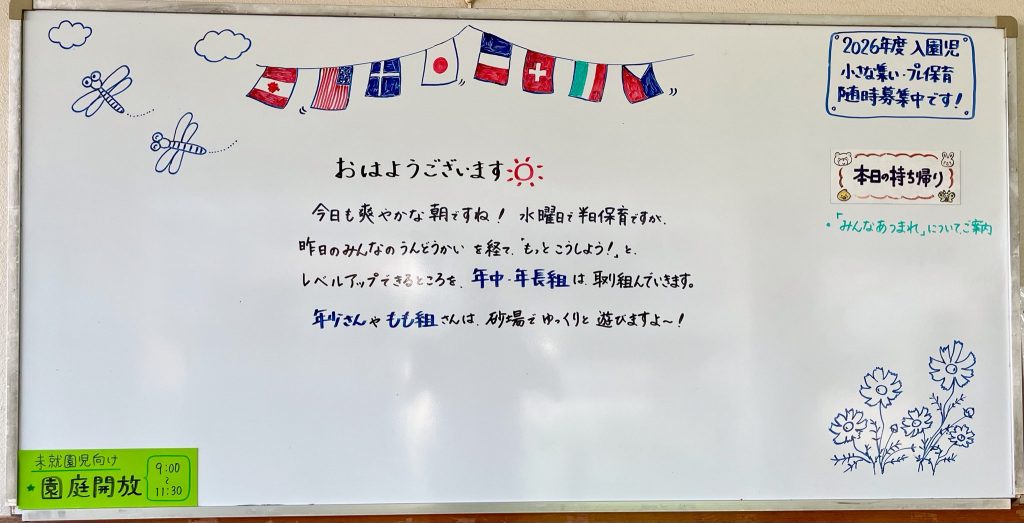 2026年度 入園児
小さな集い・プレ保育
随時募集中です！
本日の持ち帰り
・「みんなあつまれ」についてご案内
おはようございます
今日も爽やかな朝ですね！ 水曜日で半日保育ですが、
昨日のみんなのうんどうかいを経て、「もっとこうしよう！」と、
レベルアップできるところを、年中・年長組は、取り組んでいきます。
年少さんやもも組さんは、砂場でゆっくりと遊びますよ〜！
未就園児向け
園庭開放
9:00
〜
11:30